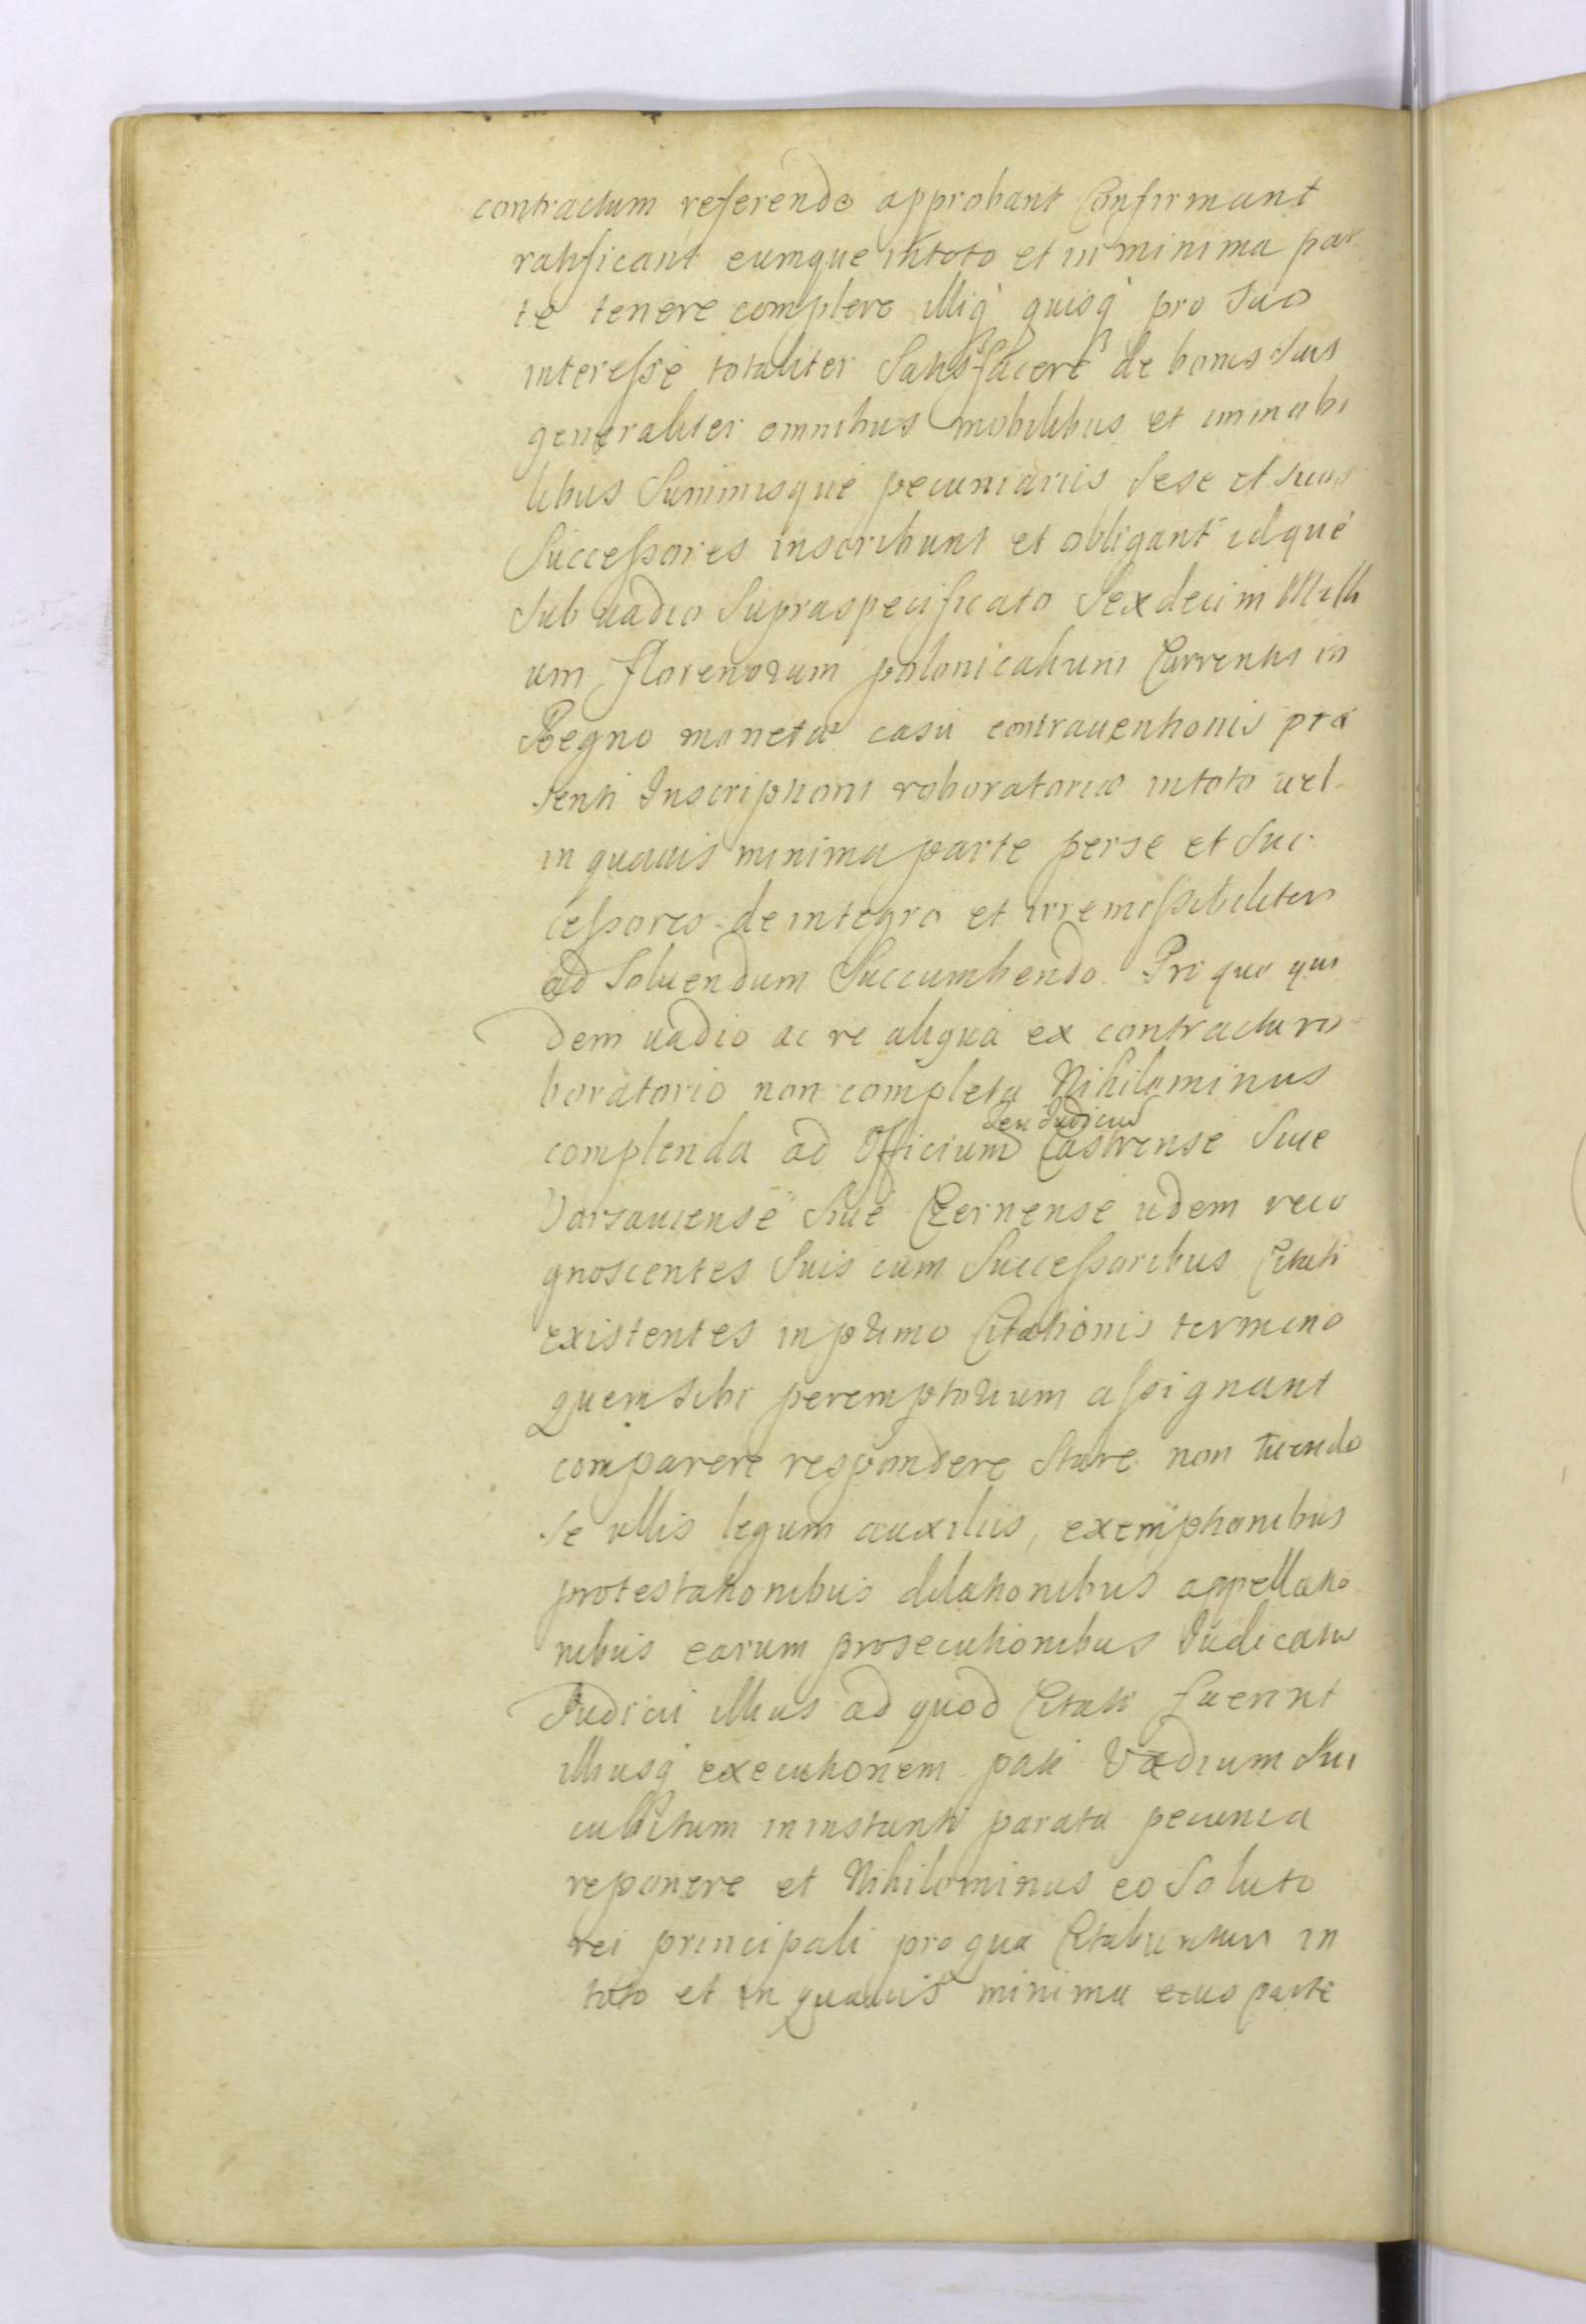 contractum referendo approbant Confirmant
ratificant eumque intoto et in minima par
te tenere complere illiq quisq pro suo
interesse totaliter Satisfacere de bonis suis
generaliter omnibus mobilibus et immobi
libus Summisque pecuniariis sese et suos
Successores inscribunt et obligant idque
sub uadio supraspecificato Sexdecim Milli
um florenorum polonicalium Currentis in
Regno monetæ casu contrauentionis præ
senti Inscriptioni roboratoriæ intoto uel
in quauis minima parte perse et suc
cessores de integro et irremissibiliter
ad soluendum Succumbendo. Pro quo qui
dem uadio ac re aliqua ex contractu ro
boratorio non completa Nihilominus
seu Judicium
complenda ad Officium Castrense siue
Varsauiense siue Czernense iidem reco
gnoscentes suis cum Successoribus Citati
existentes in primo Citationis termino
quem sibi peremptorium assignant
comparere respondere stare non tuendo
se ullis legum auxiliis, exemptionibus
protestationibus dilationibus appellatio
nibus earum prosecutionibus Judicatu
Judicii illius ad quod Citati fuerint
illiusq executionem pati Vadium suc
cubitum ininstanti parata pecunia
reponere et Nihilominus eo soluto
rei principali pro qua Citabuntur in
toto et in quauis minima eius parte